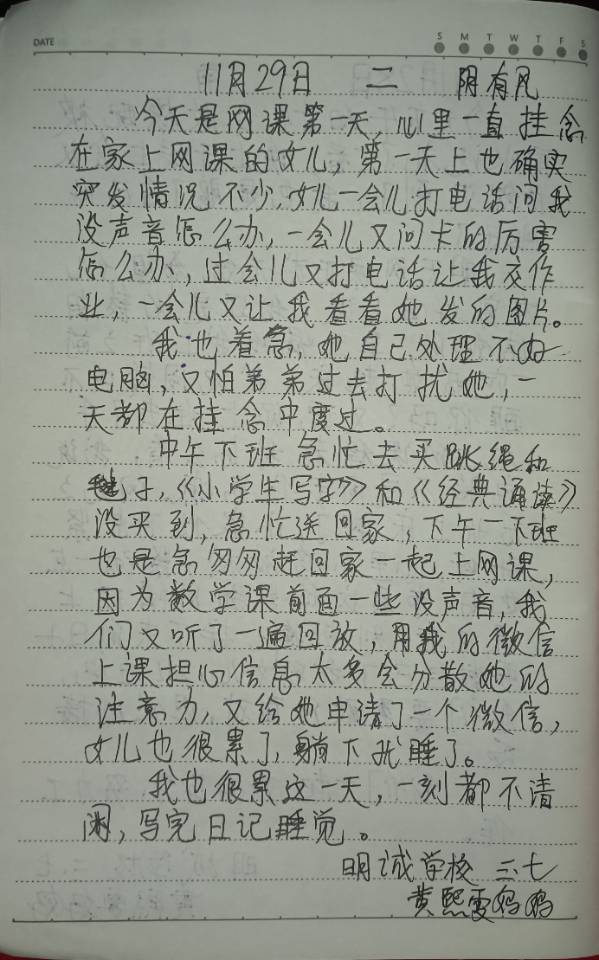 DATE
S M T W T F S
11月29日 二 阴有风
今天是网课第一天,心里一直挂念
在家上网课的女儿,第一天上也确实
突发情况不少,女儿一会儿打电话问我
没声音怎么办,一会儿又问卡的厉害
怎么办,过会儿又打电话让我交作
业,一会儿又让我看看她发的图片。
我也着急,她自己处理不好
电脑,又怕弟弟过去打扰她,一
天都在挂念中度过。
中午下班急忙去买跳绳和
毽子,《小学生写字》和《经典诵读》
没买到,急忙送回家,下午一下班
也是急匆匆赶回家一起上网课,
因为数学课前面一些没声音,我
们又听了一遍回放,用我的微信
上课担心信息太多会分散她的
注意力,又给她申请了一个微信,
女儿也很累了,躺下就睡了。
我也很累这一天,一刻都不清
闲,写完日记睡觉。
明诚学校 三.七
黄熙雯妈妈